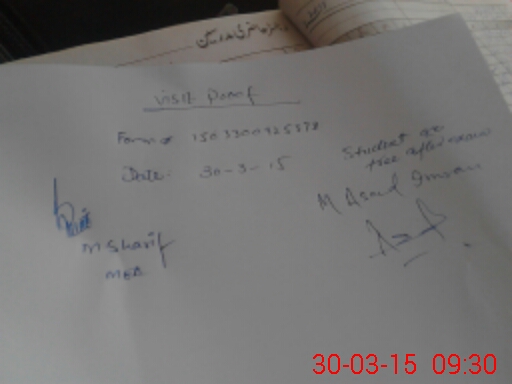 Visit Proof
Form # 1503300925378
Date:- 30-3-15
Student are
free after exam
M Asad Imran
M Sharif
MEA
30-03-15 09:30